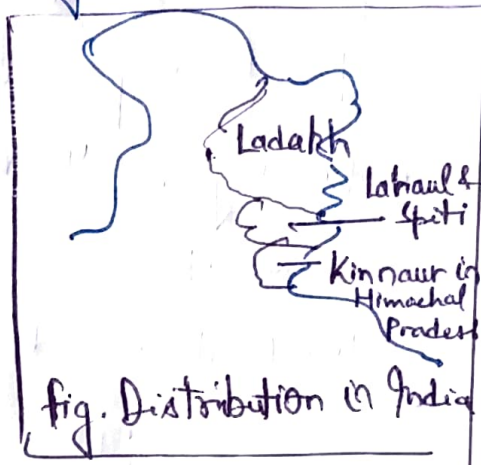 Ladakh
Lahaul &
Spiti
Kinnaur in
Himachal
Prades
fig. Distribution in India